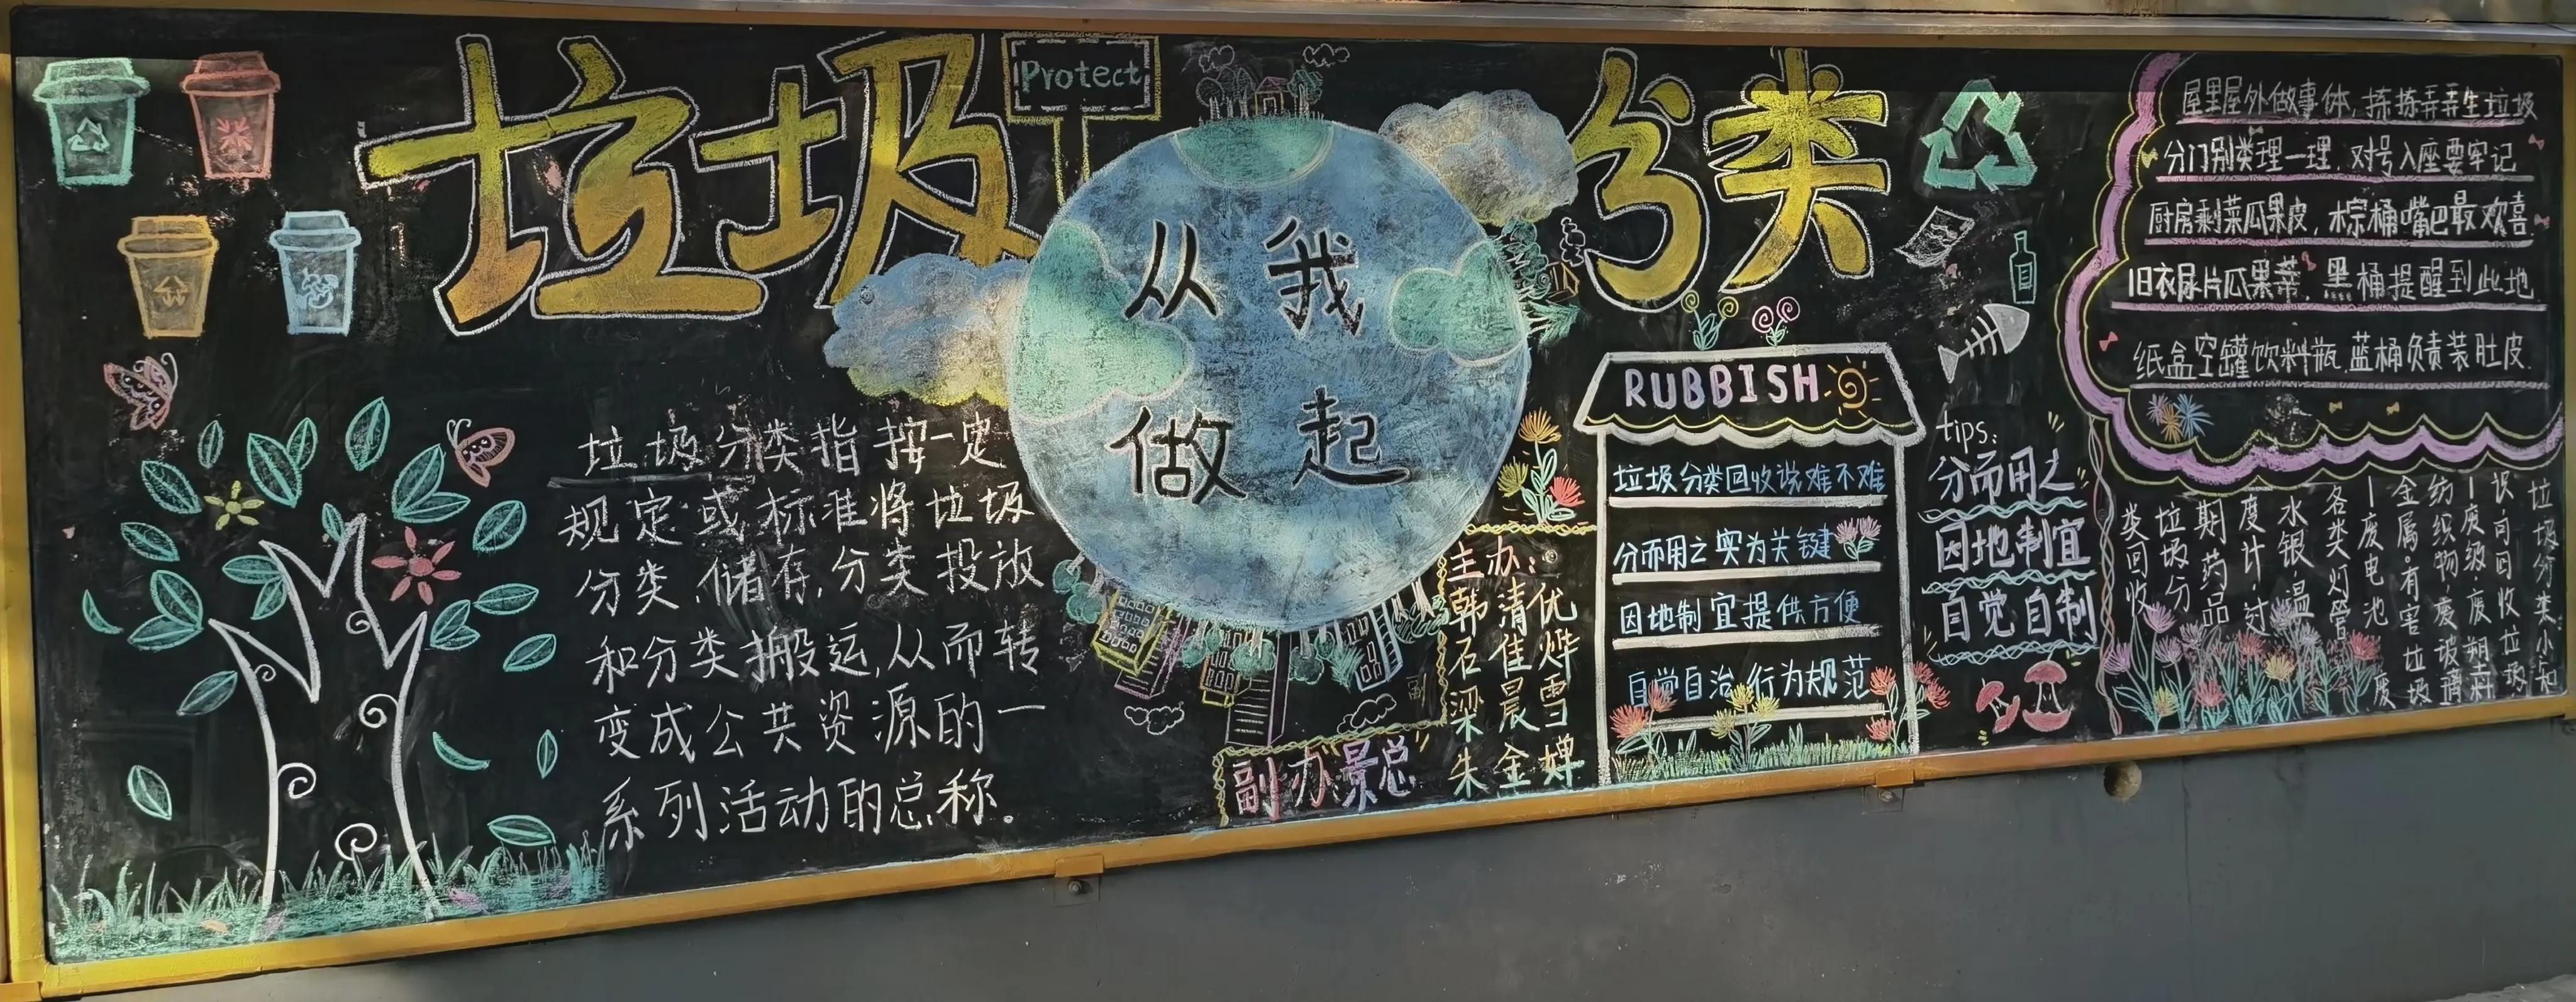 垃圾分类
Protect
从我
做起
垃圾分类指按一定
规定或标准将垃圾
分类、储存、分类投放
和分类搬运,从而转
变成公共资源的一
系列活动的总称。
主办:
韩清优
石佳烨
梁晨雪
朱金婵
副办景总
RUBBISH
垃圾分类回收说难不难
分而用之实为关键
因地制宜提供方便
自觉自治行为规范
tips:
分而用之
因地制宜
自觉自制
屋里屋外做事体,拣拣弄弄生垃圾
分门别类理一理,对号入座要牢记
厨房剩菜瓜果皮,棕桶嘴巴最欢喜
旧衣尿片瓜果菜,黑桶提醒到此地
纸盒空罐饮料瓶,蓝桶负责装肚皮.
垃圾分类小知
识向回收垃圾
丨废纸·废塑料
纺织物废玻璃
金属·有害垃圾
丨废电池 废
各类灯管
水银·温
度计·过
期药品
垃圾分
类回收